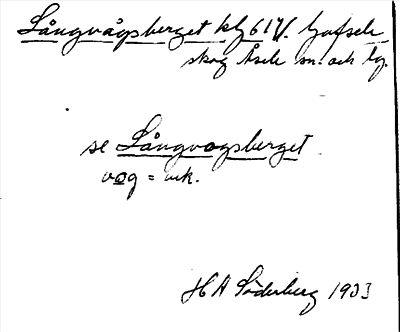 Långvågsberget kly 617/. Gafsele
skog Åsele sn. och lg.
se Långvogsberget
vog = vik.
H A Söderberg 1903